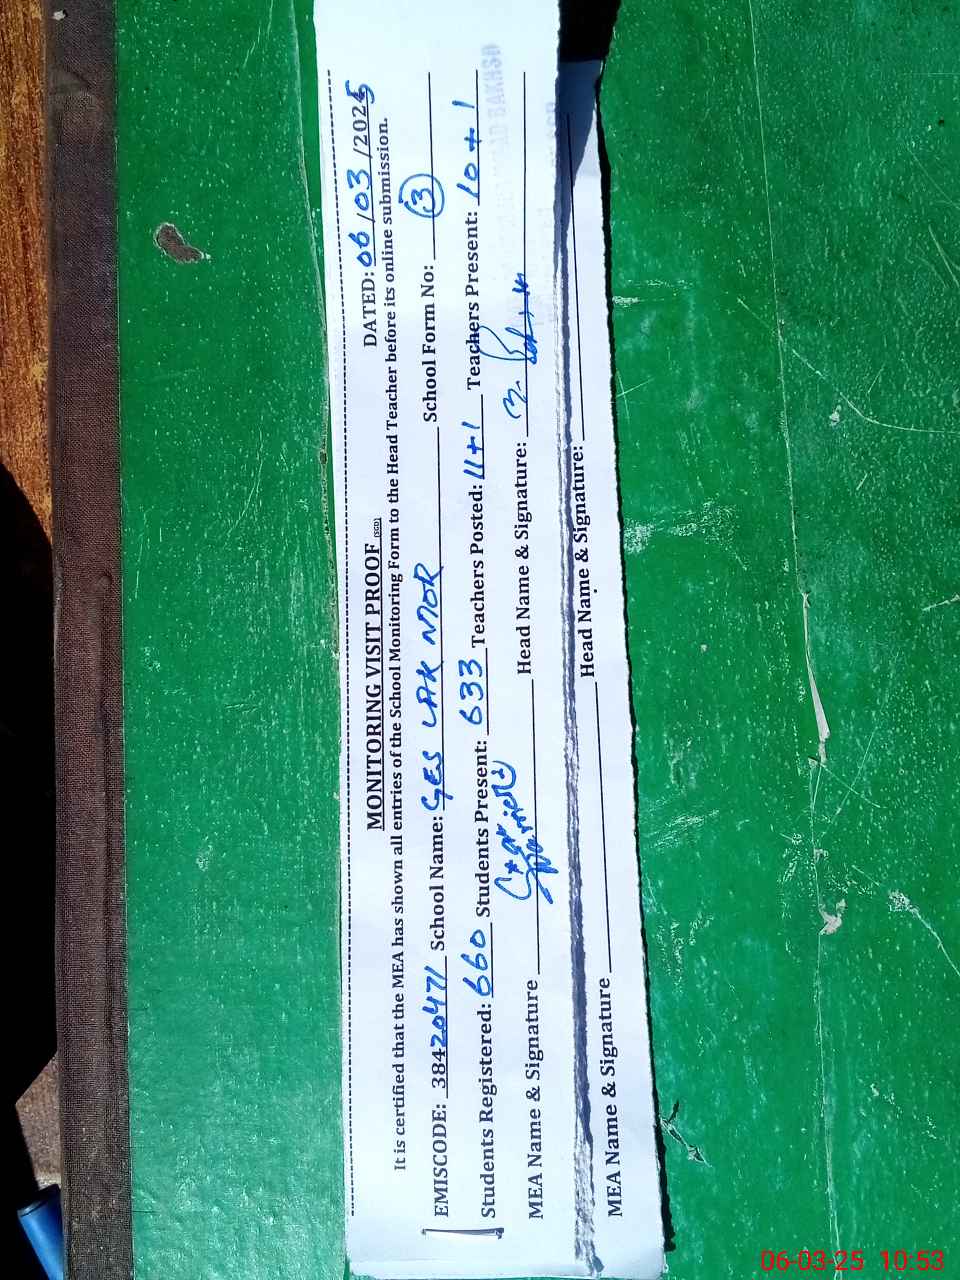 DATED: 06/03/2025
MONITORING VISIT PROOF (SGD)
It is certified that the MEA has shown all entries of the School Monitoring Form to the Head Teacher before its online submission.
EMISCODE: 38420471 School Name: GES LAK MOR School Form No: 3
Students Registered: 660 Students Present: 633 Teachers Posted: 11+1 Teachers Present: 10+1
MEA Name & Signature Head Name & Signature:
MEA Name & Signature Head Name & Signature:
06-03-25 10:53